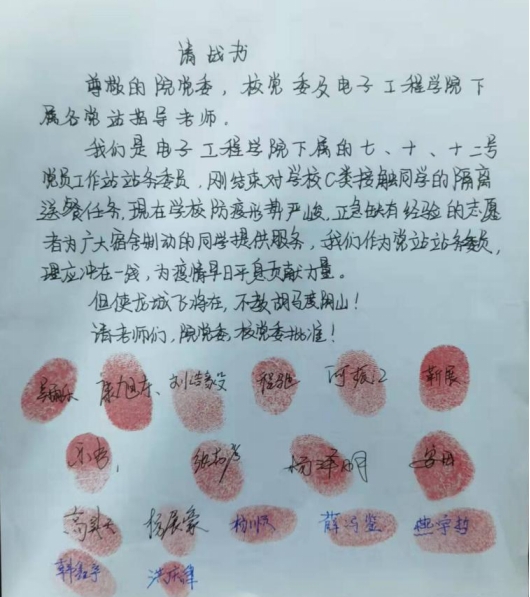 请战书
尊敬的院党委，校党委及电子工程学院下
属各党站指导老师。
我们是电子工程学院下属的七、十、十二号
党员工作站站务委员，刚结束对学校C类接触同学的隔离
送餐任务，现在学校防疫形势严峻，正急缺有经验的志愿
者为广大宿舍制动的同学提供服务，我们作为党站站务委员，
理应冲在一线，为疫情早日平息贡献力量。
但使龙城飞将在，不教胡马度阴山！
请老师们，院党委，校党委批准！
康旭东、刘浩毅 程旭 靳展
杨泽明
杨展豪 杨顺 燕学哲
韩红宇